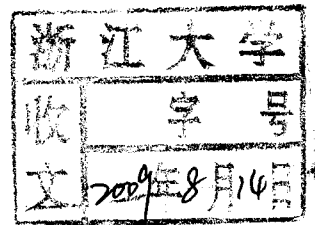 浙江大学
收文
字 号
2009年8月14日